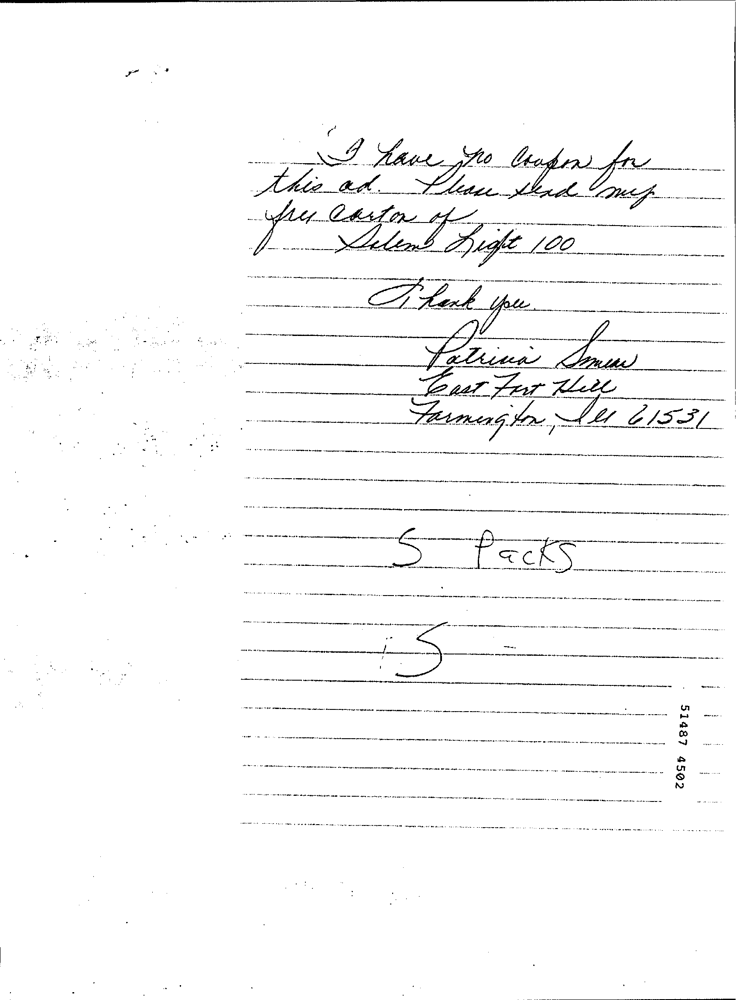 I have no coupon for
this ad. Please send my
free carton of
Salem Light 100
Thank you
Patricia
East Fort Hill
Farmington, Ill 61531
5 Packs
5
51487 4502